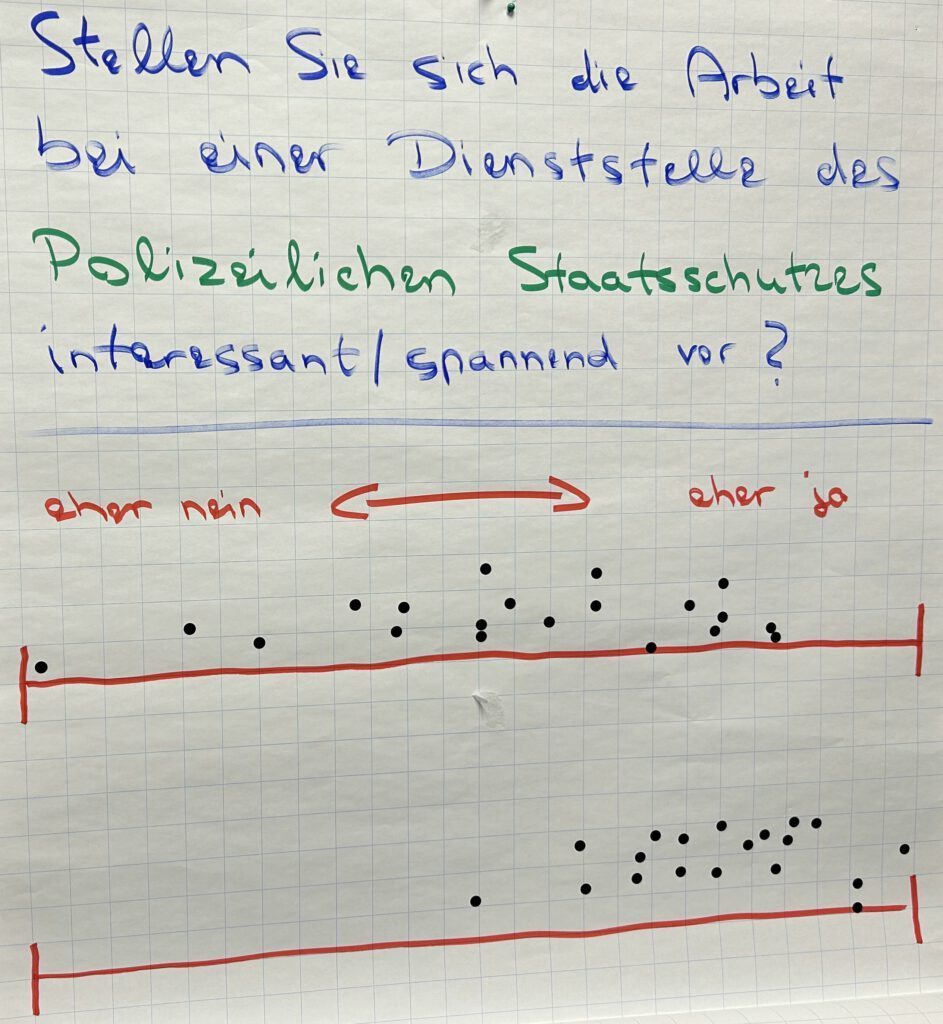 Stellen Sie sich die Arbeit
bei einer Dienststelle des
Polizeilichen Staatsschutzes
interessant/spannend vor?
eher nein
eher ja